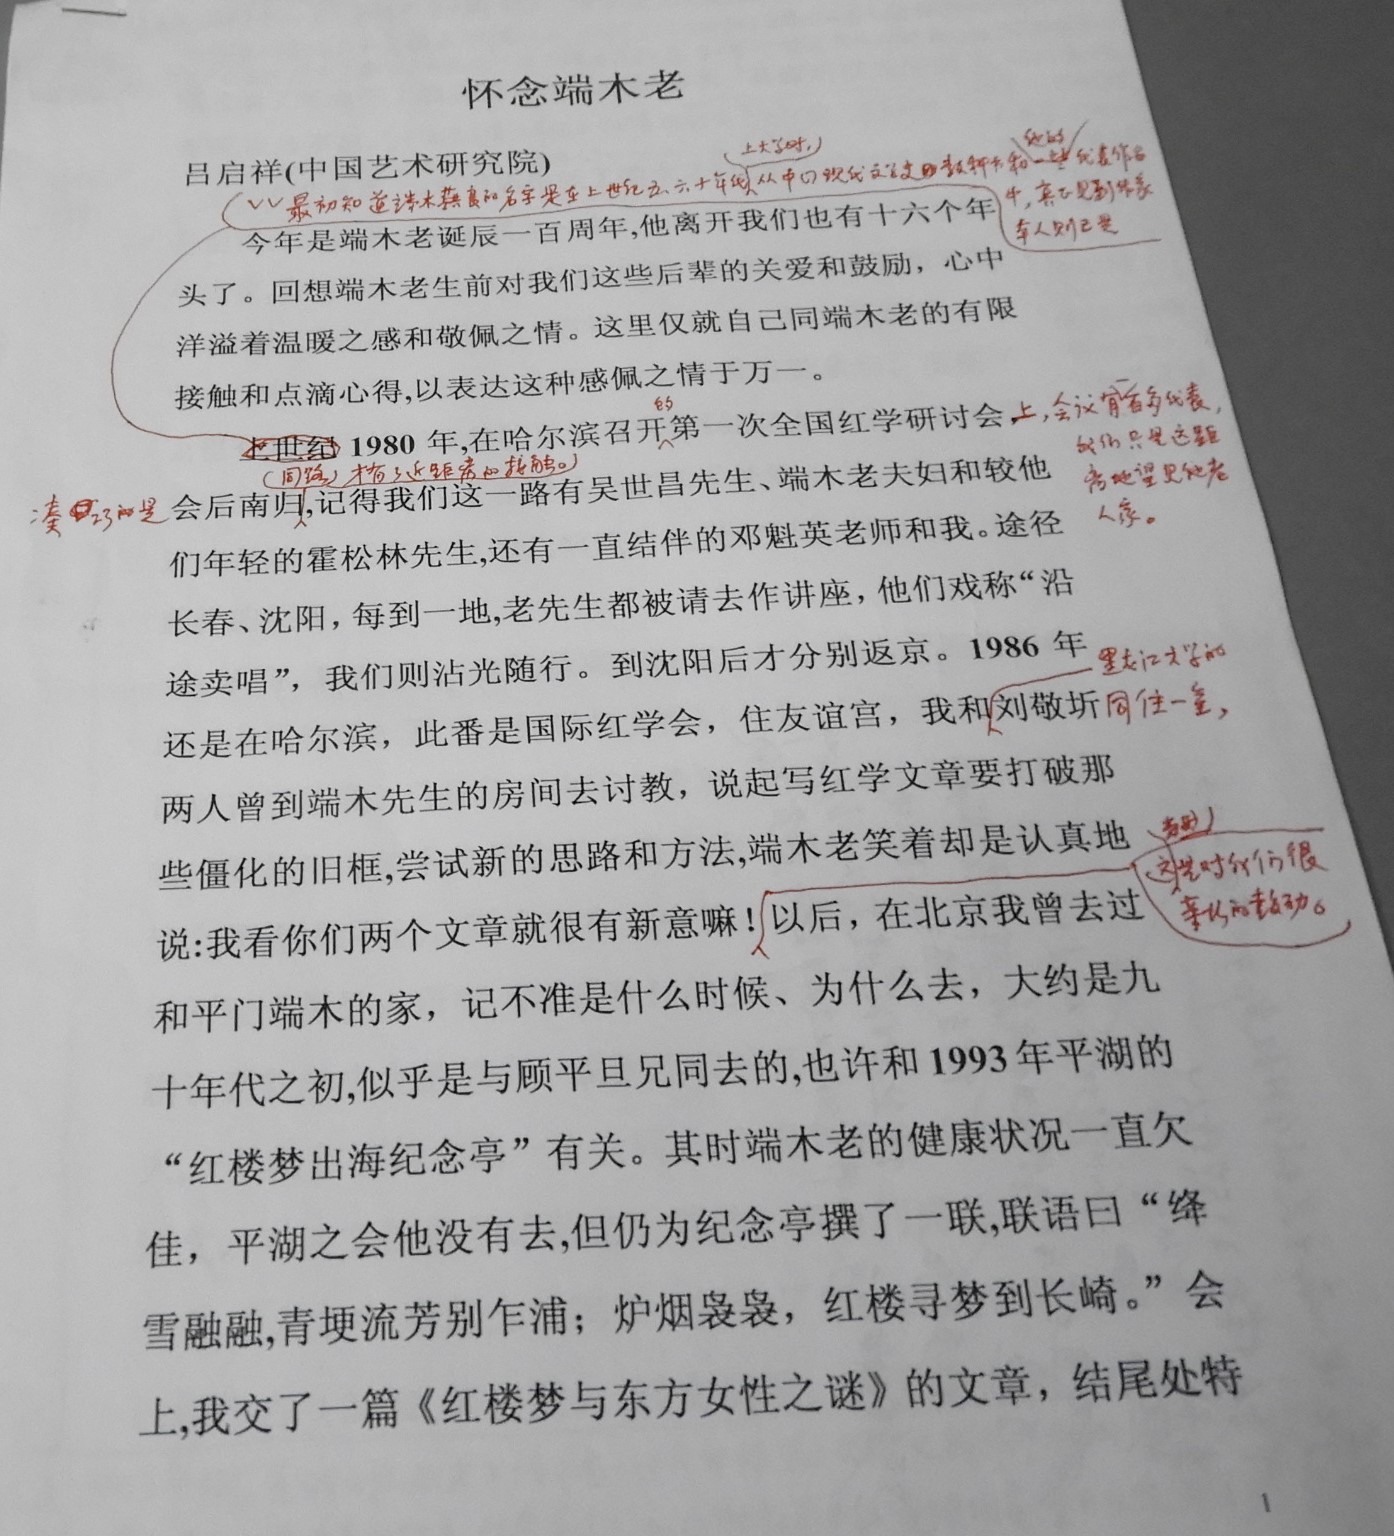 怀念端木老
吕启祥(中国艺术研究院)
上大学时,
他的
最初知道端木蕻良的名字是在上世纪五、六十年代,从中 现代文学史的教科书和一些代表作品
中,真正见到作家
本人则已是
今年是端木老诞辰一百周年,他离开我们也有十六个年
头了。回想端木老生前对我们这些后辈的关爱和鼓励，心中
洋溢着温暖之感和敬佩之情。这里仅就自己同端木老的有限
接触和点滴心得,以表达这种感佩之情于万一。
的
上世纪 1980 年,在哈尔滨召开第一次全国红学研讨会,上,会议有百多代表,
我们只是远距
离地望见他老
人家。
(同路)才有了近距离的接触。
凑巧的是
会后南归,记得我们这一路有吴世昌先生、端木老夫妇和较他
们年轻的霍松林先生,还有一直结伴的邓魁英老师和我。途径
长春、沈阳，每到一地,老先生都被请去作讲座，他们戏称“沿
途卖唱”，我们则沾光随行。到沈阳后才分别返京。1986 年
黑龙江大学的
还是在哈尔滨，此番是国际红学会，住友谊宫，我和刘敬圻
同住一室,
两人曾到端木先生的房间去讨教，说起写红学文章要打破那
些僵化的旧框,尝试新的思路和方法,端木老笑着却是认真地
这是对我们很
亲切的鼓励。
说:我看你们两个文章就很有新意嘛！以后，在北京我曾去过
和平门端木的家，记不准是什么时候、为什么去，大约是九
十年代之初,似乎是与顾平旦兄同去的,也许和 1993 年平湖的
“红楼梦出海纪念亭”有关。其时端木老的健康状况一直欠
佳，平湖之会他没有去,但仍为纪念亭撰了一联,联语曰“绛
雪融融,青埂流芳别乍浦；炉烟袅袅，红楼寻梦到长崎。”会
上,我交了一篇《红楼梦与东方女性之谜》的文章，结尾处特
1